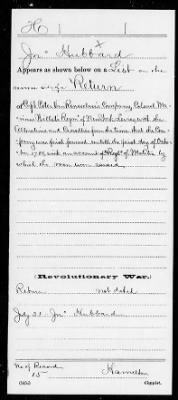 H
Jnº Hubbard
Appears as shown below on a List on the
reverse side Return
of Capt. Peter Van Rensselaer's Company, Colonel Ma-
rinus Willett's Regmt of New York Levies, with the
Alterations and Casualties from the time that the Com-
pany was first formed until the first day of Octo-
ber 1782, with an account of Regts of Militia by
which the men were raised.
(Revolutionary War.)
Return not dated
July 21. Jnº Hubbard
No of Record
15 Hamilton
Copyist.